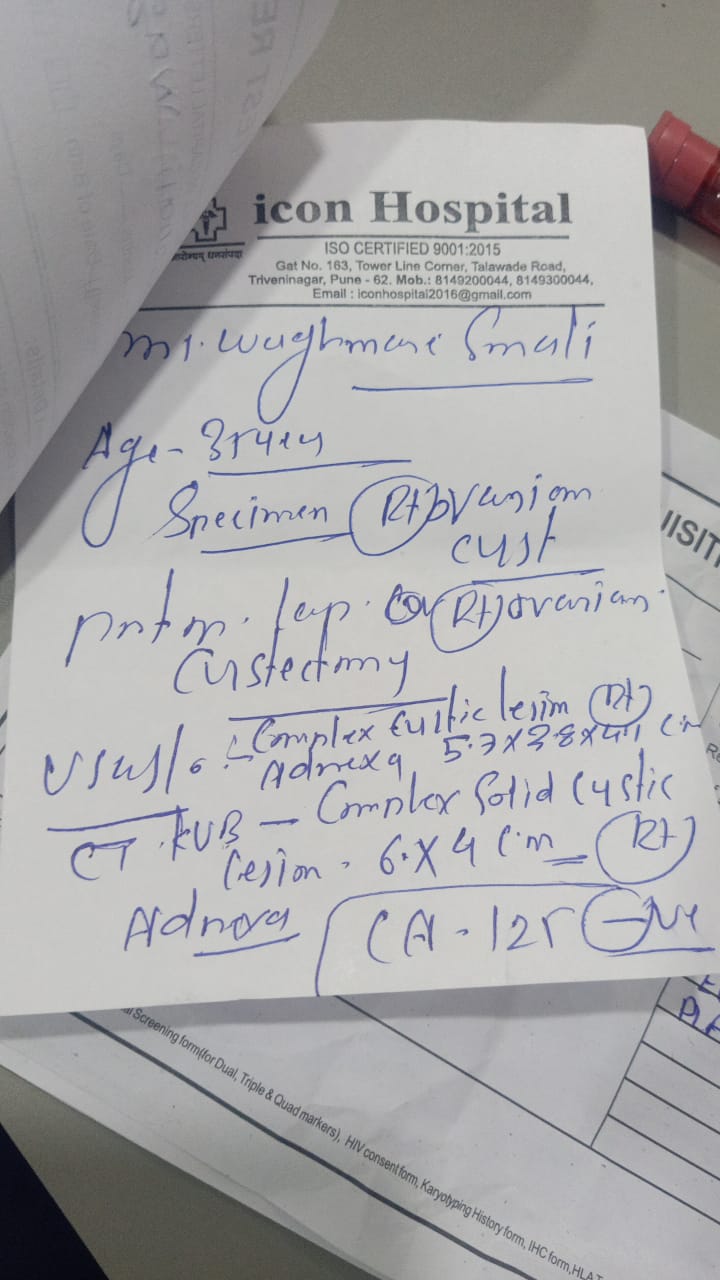 icon Hospital
ISO CERTIFIED 9001:2015
Gat No. 163, Tower Line Corner, Talawade Road,
Triveninagar, Pune - 62. Mob.: 8149200044, 8149300044,
Email : iconhospital2016@gmail.com
Waghmare
Age-
Specimen (Rt) ovarian
cyst
lap. (Rt) ovarian
Cystectomy
Complex Cystic lesion (Rt)
Adnexa 5.7 X 3.8 X cm
CT. KUB - Complex Solid Cystic
lesion - 6 X 4 Cm (Rt)
Adnexa
CA-125 -ve
Screening form(for Dual, Triple & Quad markers), HIV consent form, Karyotyping History form, IHC form,